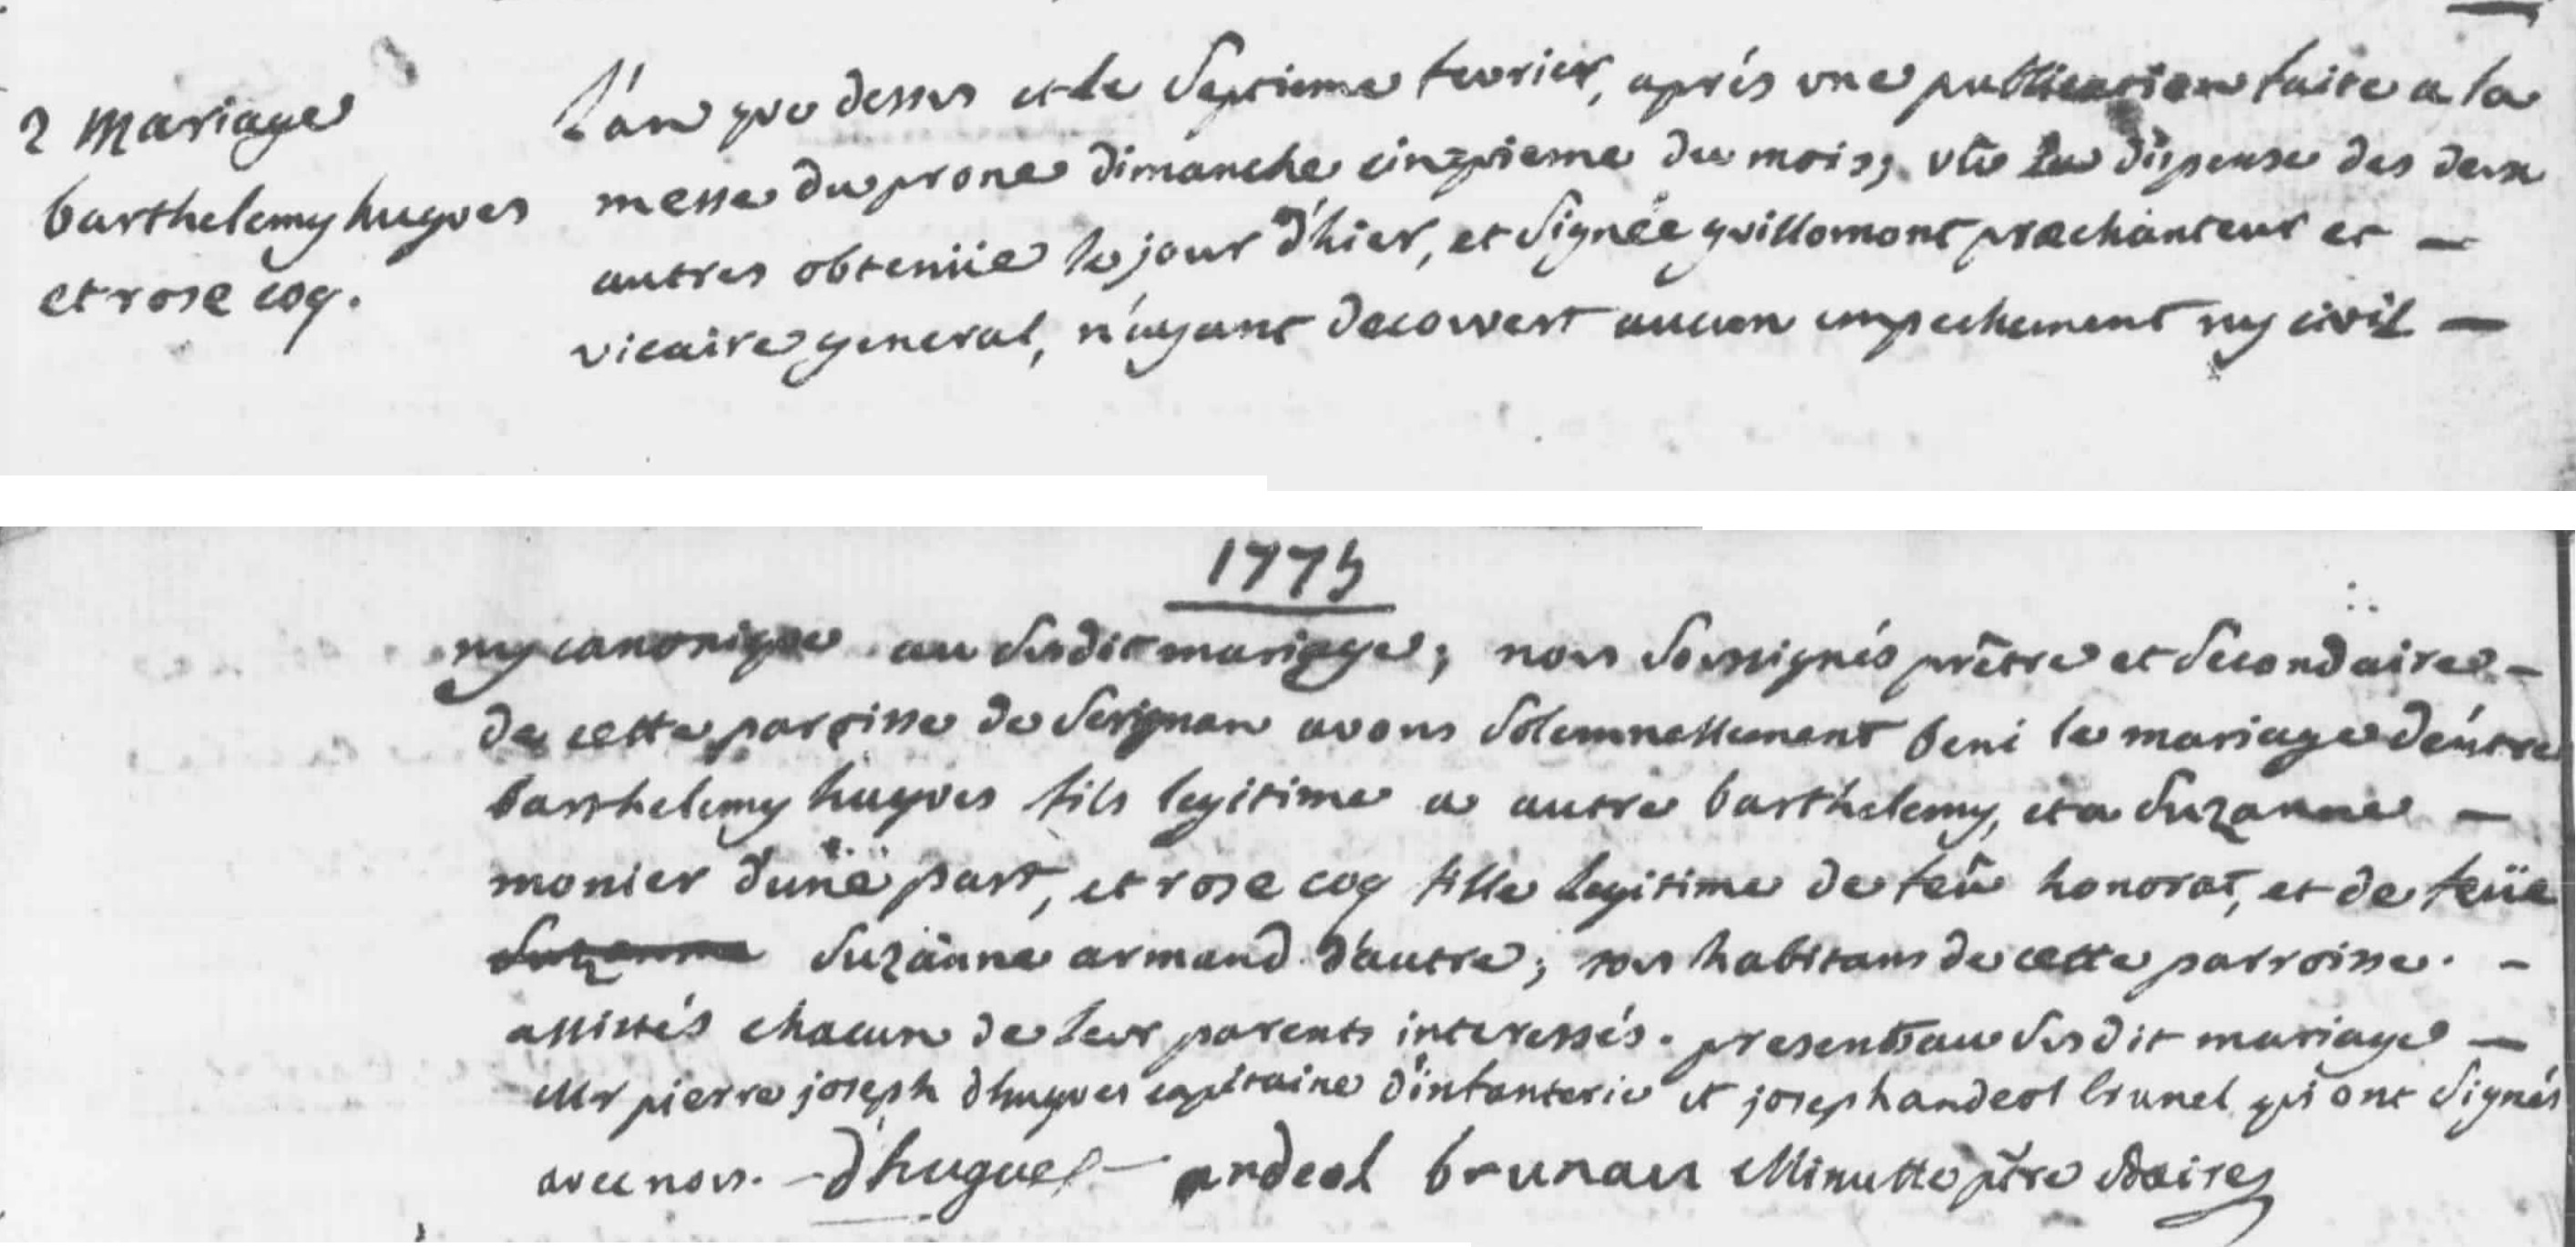 2 mariage
barthelemy hugues
et rose coq.
L'an que dessus et le septieme fevrier, aprés une publication faite a la
messe du prone dimanche cinquieme du mois; vû la dispense des deux
autres obtenüe le jour d'hier, et signée guillomont præchanteur et —
vicaire general, n'ayant decouvert aucun empechement ny civil —
1775
ny canonique au susdit mariage; nous soussignés prêtre et secondaire —
de cette parroisse de serignan avons solemnellement beni le mariage d'entre
barthelemy hugues fils legitime a autre barthelemy, et a suzanne —
monier d'une part, et rose coq fille legitime de feû honorat, et de feüe
suzanne suzanne armand d'autre; tous habitans de cette parroisse. —
assistés chacun de leur parents interessés. presents au susdit mariage —
Mr pierre joseph d'hugues capitaine d'infanterie et joseph andeol brunel qui ont signés
avec nous. — d'hugues — andeol brunau Minutte ptre sdaire